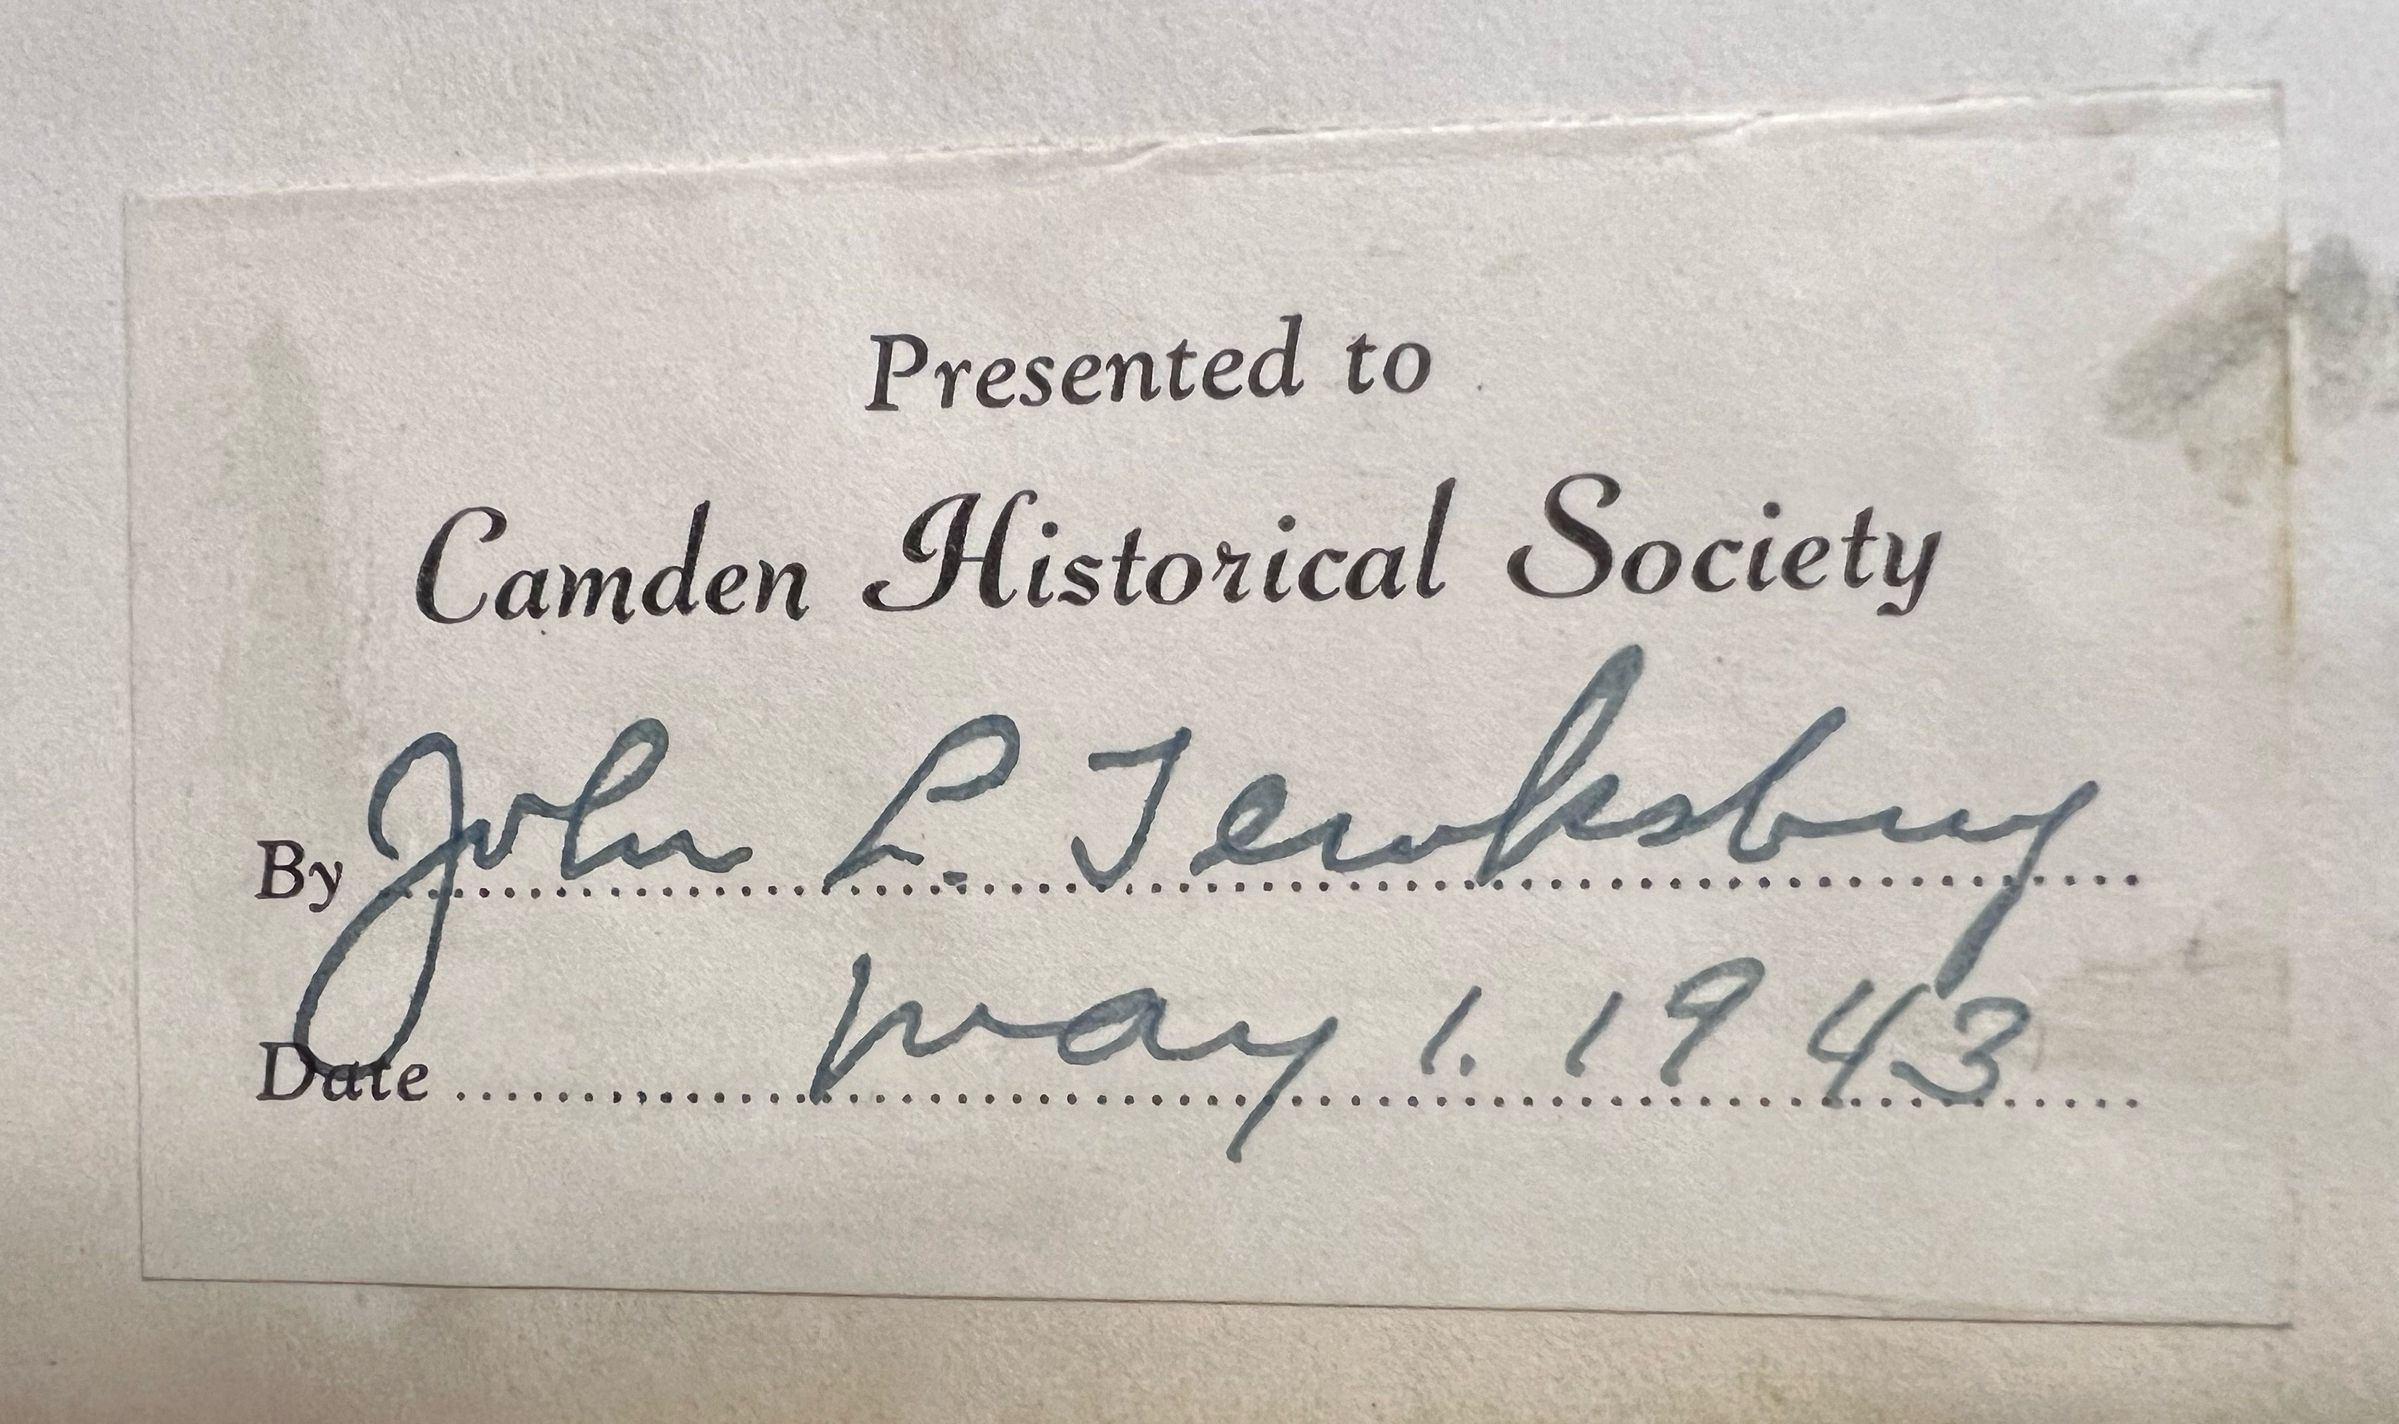 Presented to
Camden Historical Society
By John L. Tewksbury
Date May 1. 1943